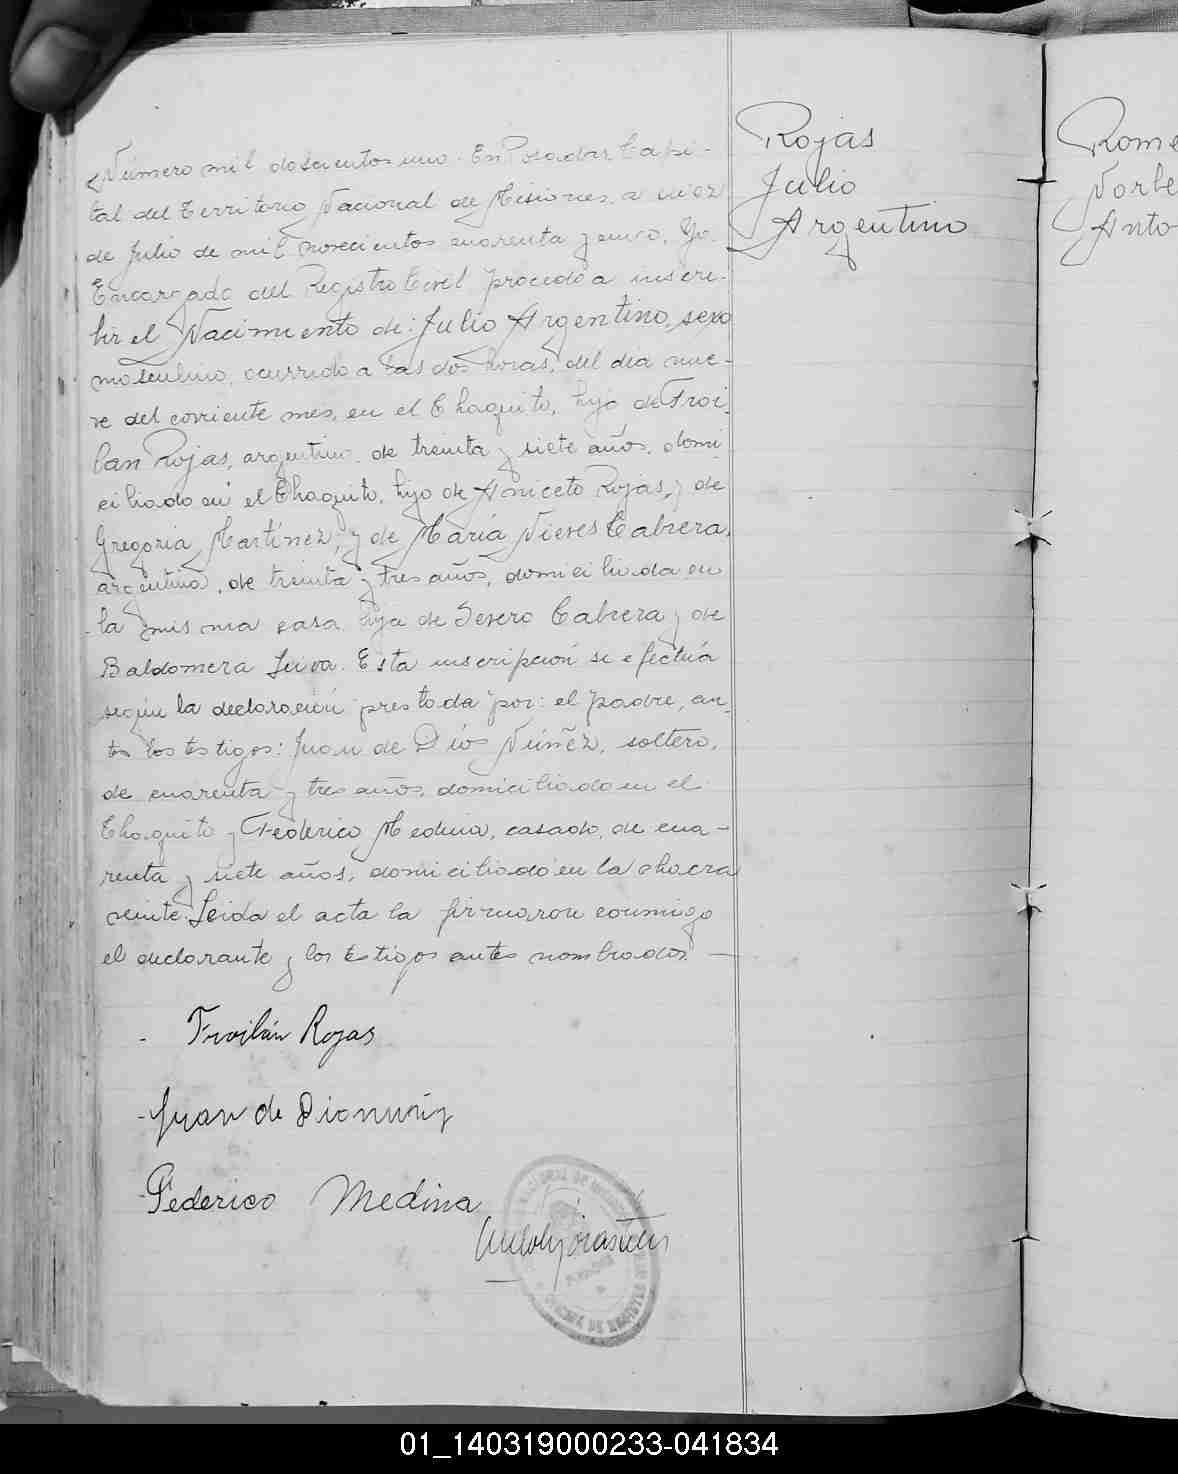 Número mil doscientos uno. En Posadas Capi-
tal del Territorio Nacional de Misiones, a diez
de Julio de mil novecientos cuarenta y cinco. Yo.
Encargado del Registro Civil procedo a inscri-
bir el Nacimiento de: Julio Argentino, sexo
masculino, ocurrido a las dos horas, del día nue-
ve del corriente mes, en el Chaquito, hijo de Froi-
lan Rojas, argentino, de treinta y siete años, domi
ciliado en el Chaquito, hijo de Aniceto Rojas, y de
Gregoria Martínez; y de María Nieves Cabrera,
argentina, de treinta y tres años, domiciliada en
la misma casa hija de Severo Cabrera y de
Baldomera Leiva. Esta inscripción se efectúa
según la declaración prestada por: el padre, an-
te los testigos: Juan de Dios Núñez, soltero,
de cuarenta y tres años, domiciliado en el
Chaquito y Federico Medina, casado, de cua-
renta y siete años, domiciliado en la chacra
veinte. Leida el acta la firmaron conmigo
el declarante y los testigos antes nombrados. —
Rojas
Julio
Argentino
- Froilán Rojas
- Juan de Dionuñiz
- Federico Medina
Rome
Norbe
Anto
01_140319000233-041834